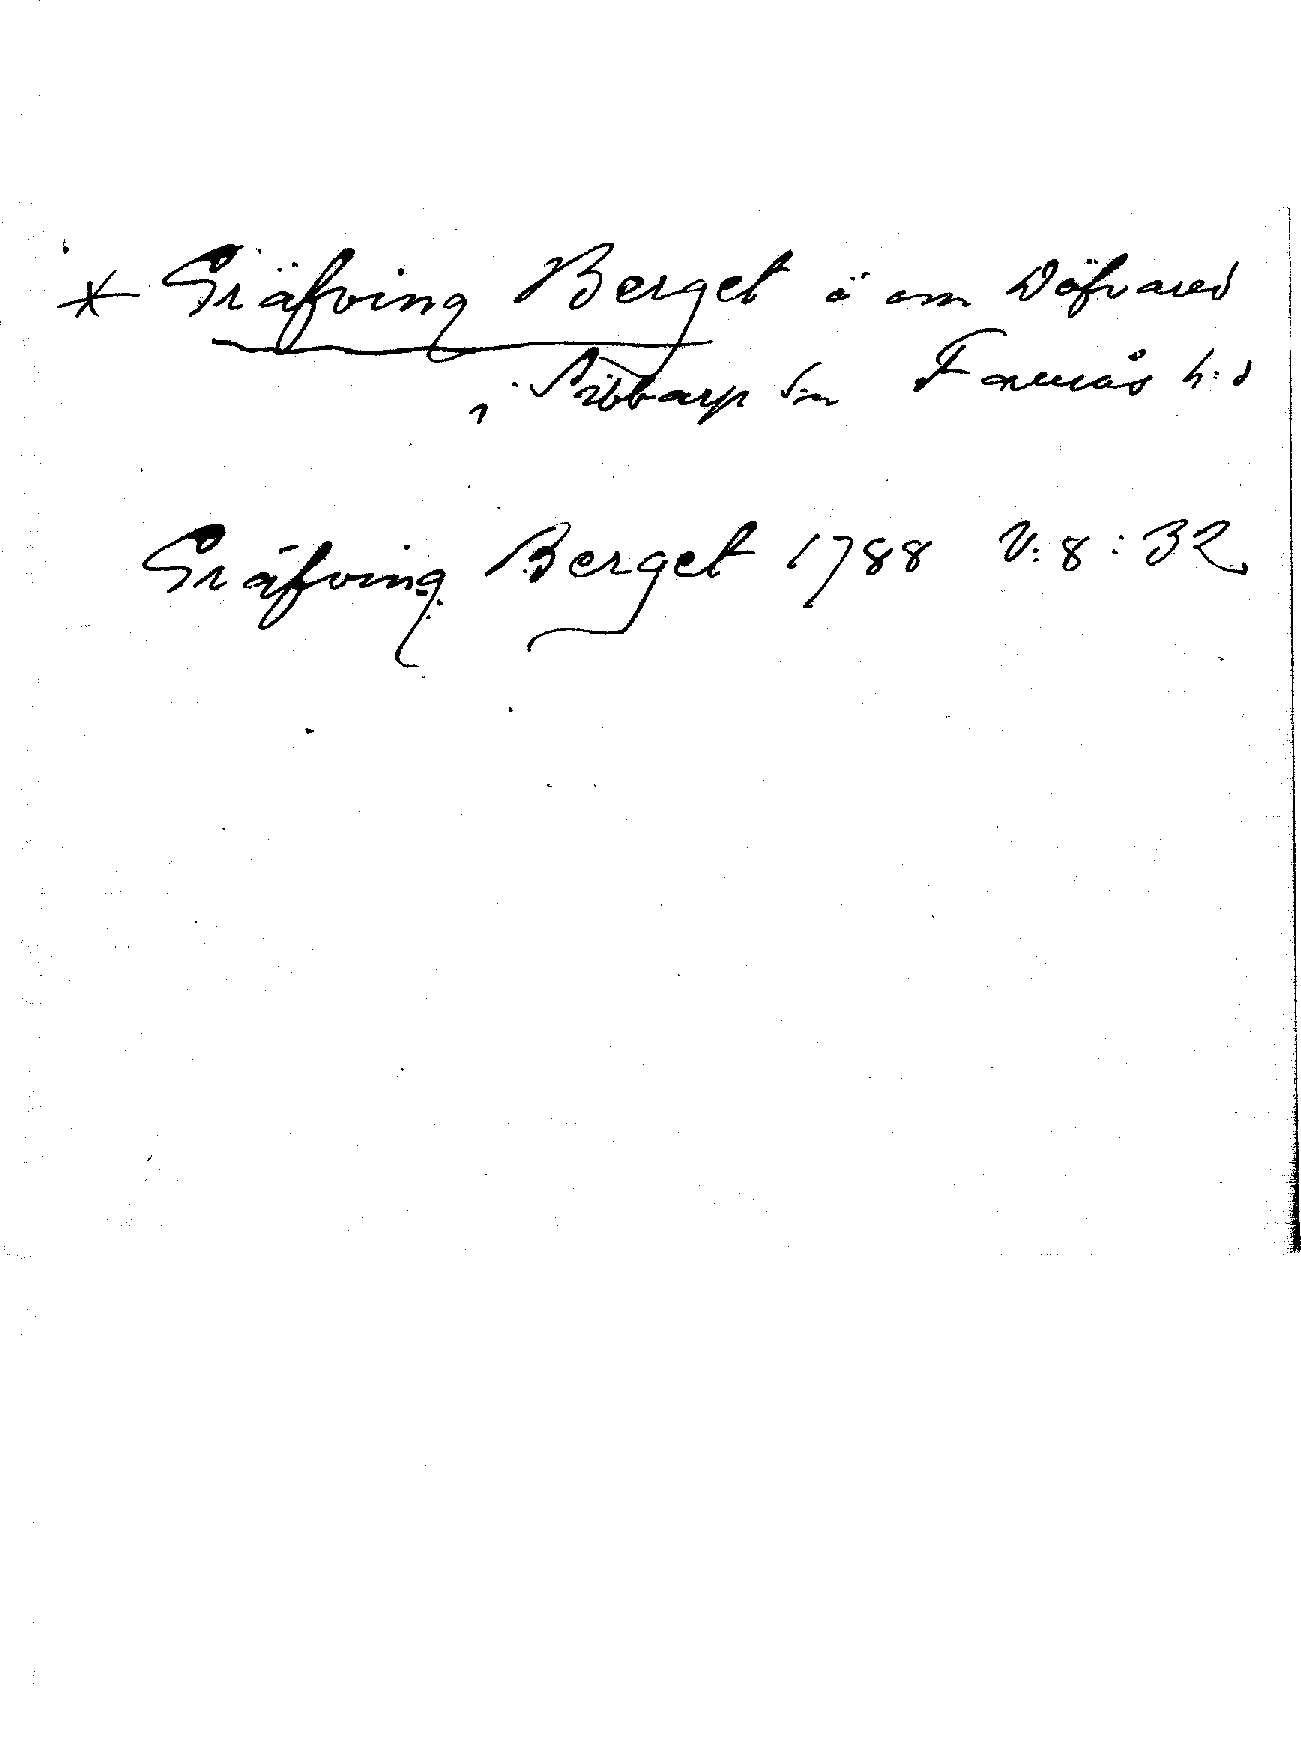 * Gräfving Berget ö om Döfvared
i Sibbarp sn Faurås h:d
Gräfving Berget 1788 V: 8: 32